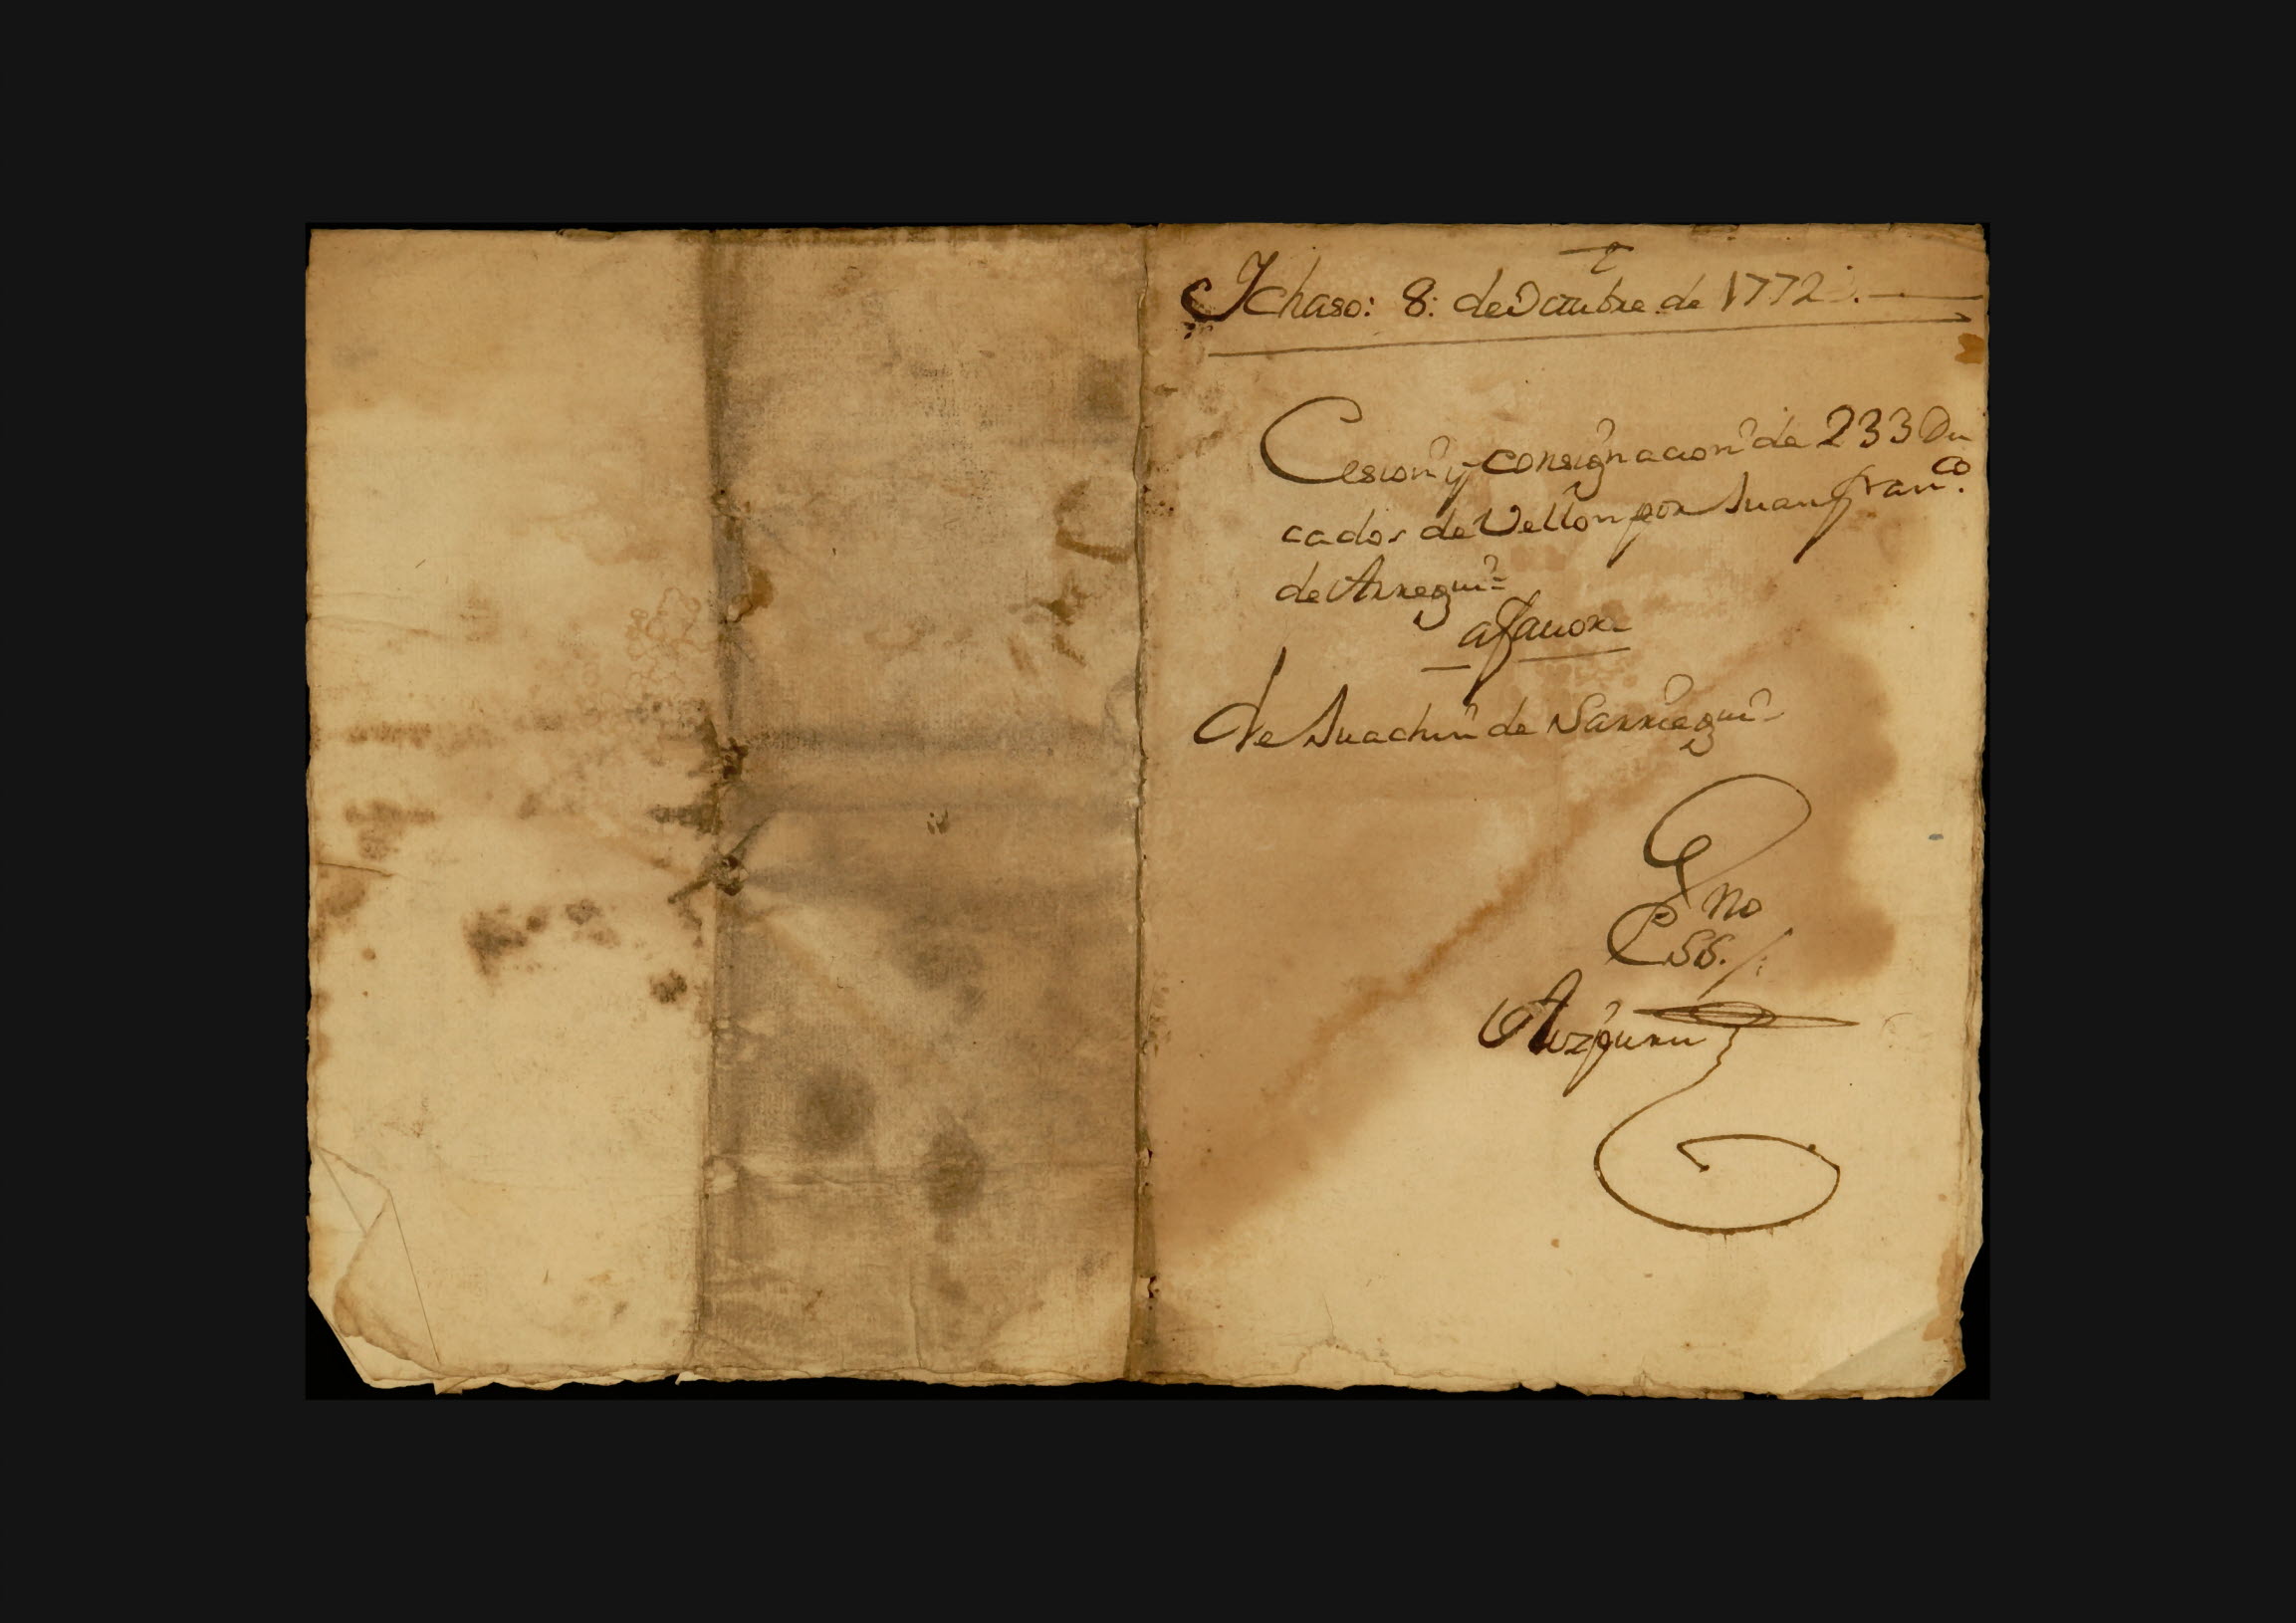 Ychaso: 8: de Octubre de 1772.
Cesion y consignacion de 233 Du
cados de Vellon por Juan Fran.co
de Arregui=
a favor
de Juachin de Sarriegui
Essno
Aizpuru